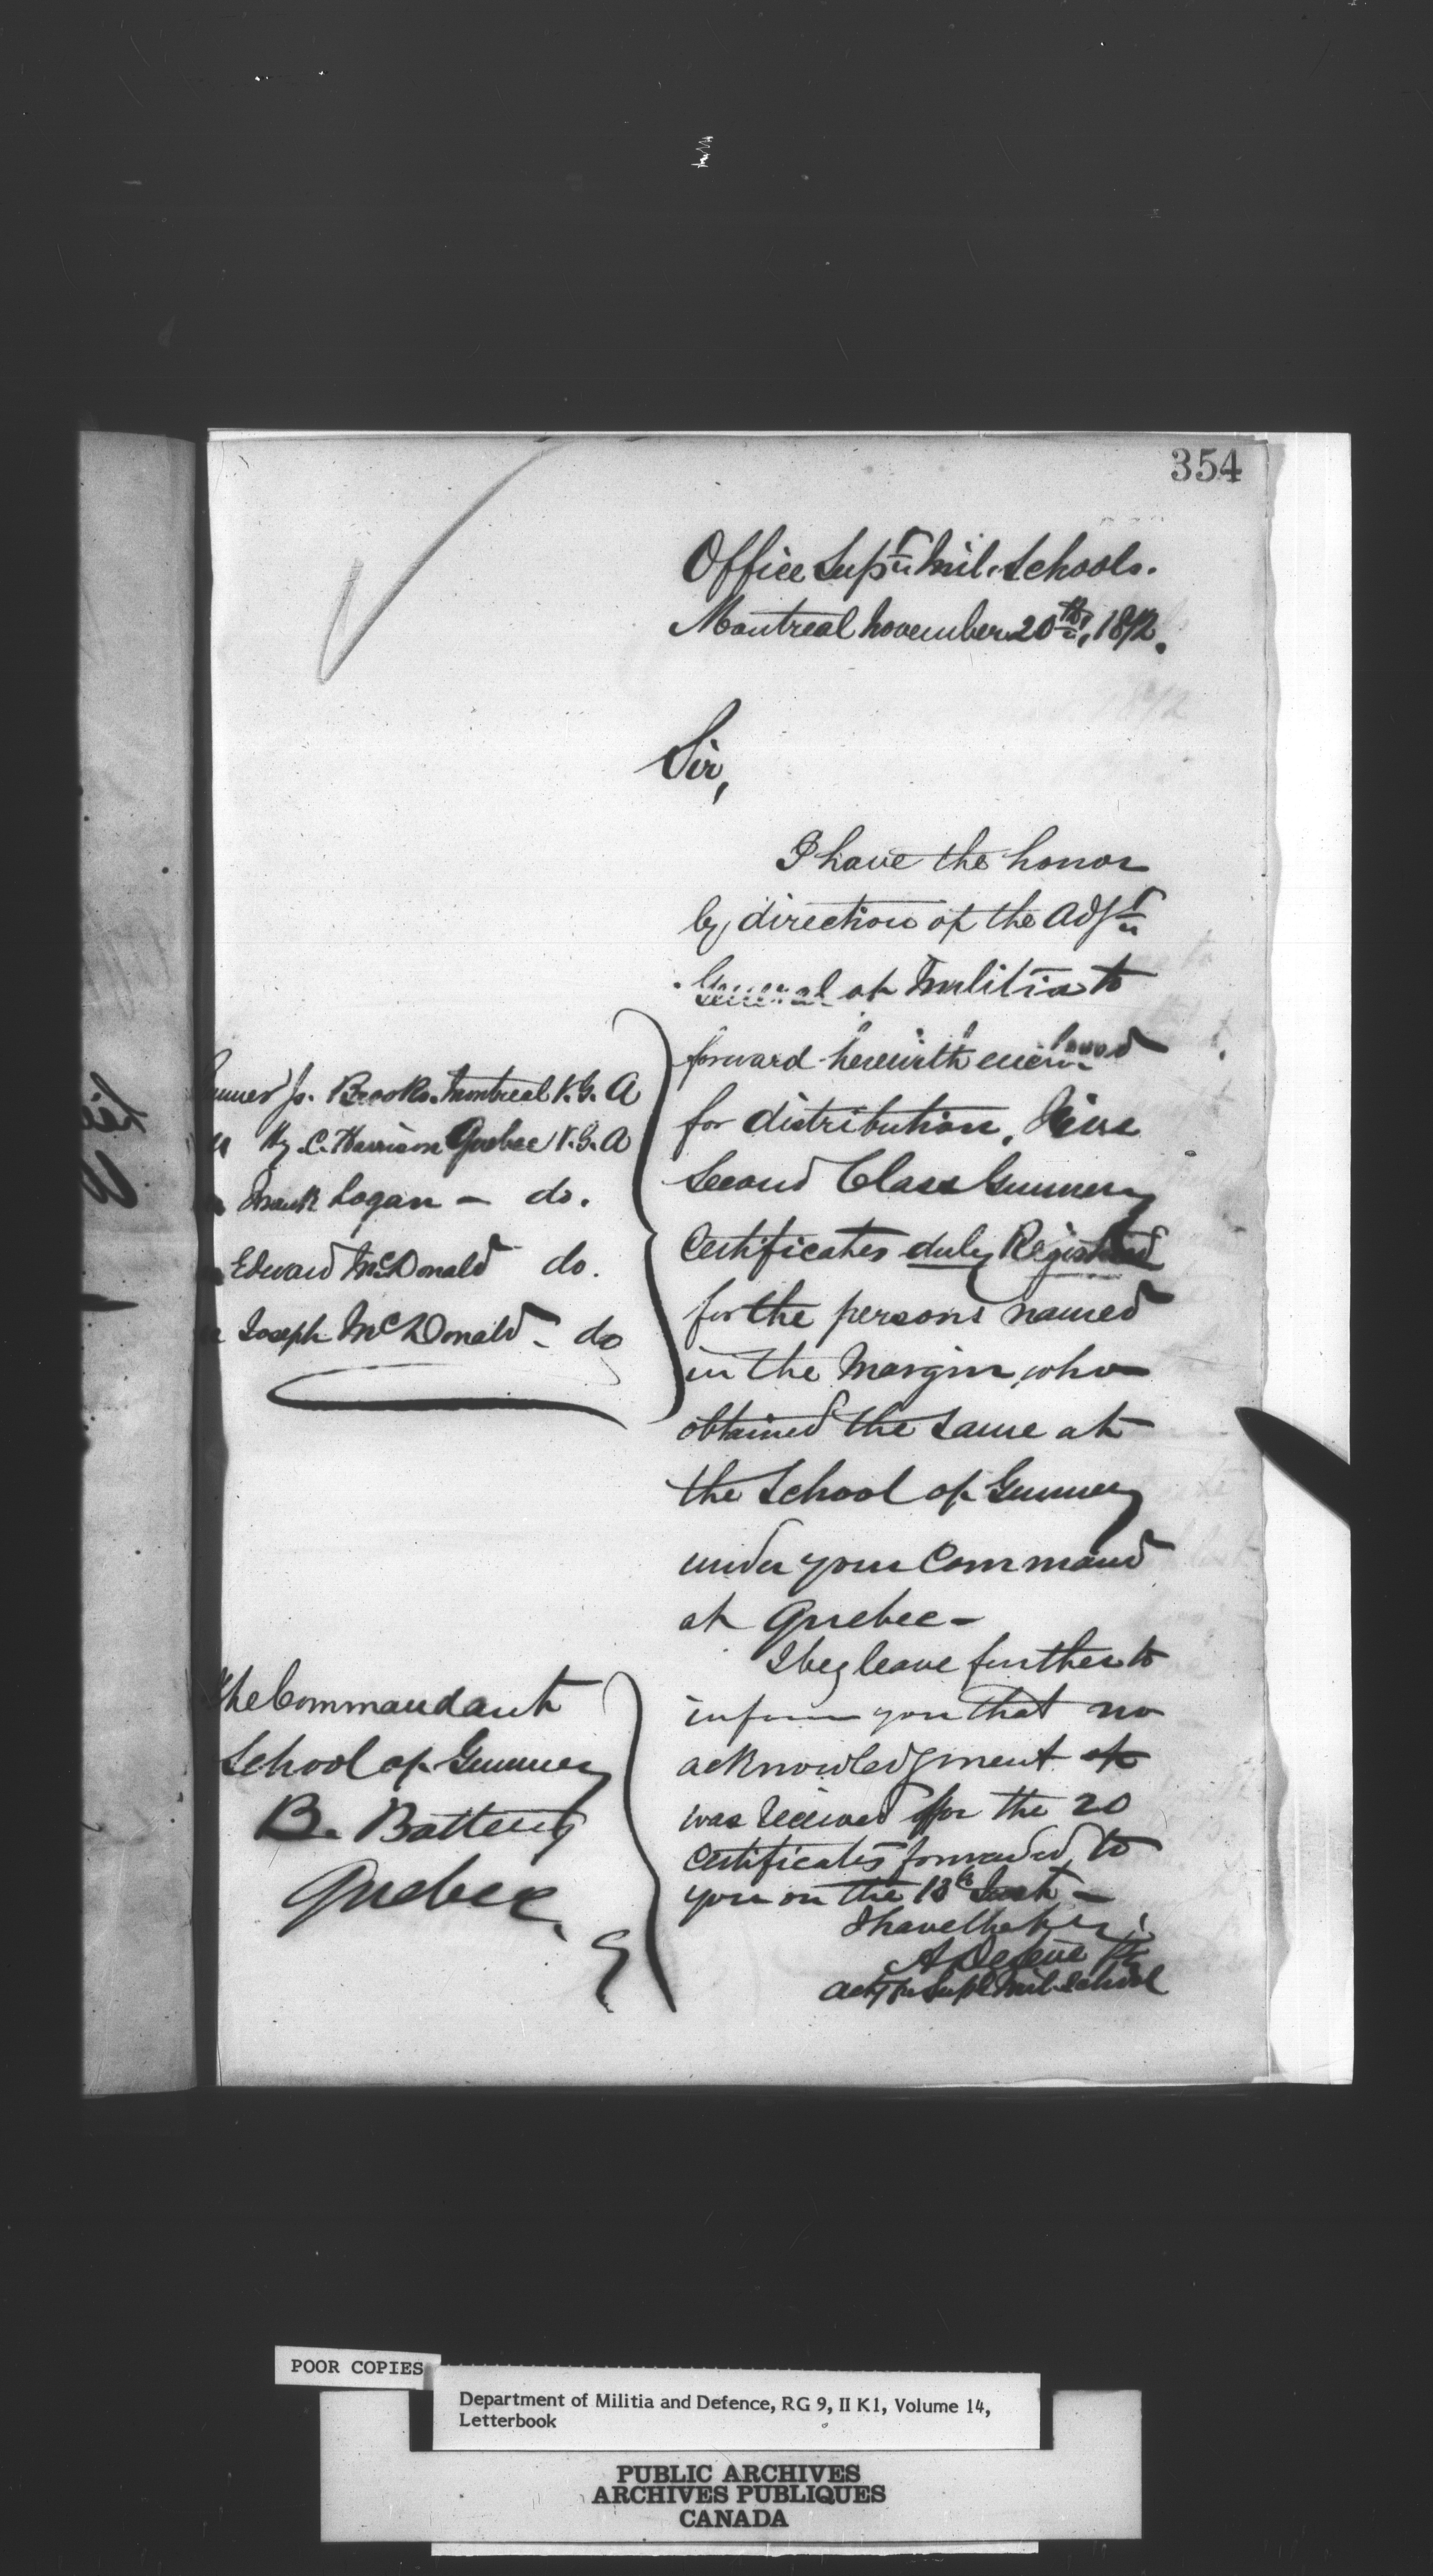 354
Office Supt. Mil. Schools.
Montreal November 20th, 1872.
Sir,
I have the honor
by direction of the Adjt
General of Militia to
forward herewith enclosed
for distribution, Five
Second Class Gunnery
Certificates duly Registered
for the persons named
in the Margin, who
obtained the same at
the School of Gunnery
under your Command
at Quebec -
I beg leave further to
inform you that no
acknowledgment of
was received for the 20
Certificates forwarded to
you on the 13th Inst -
I have the
Actg Supt Mil. School
Js. Brooks. Montreal V. G. A
" Hy. C. Harrison Quebec V. G. A
Frank Logan - do.
Edward McDonald do.
Joseph McDonald - do
The Commandant
School of Gunnery
B. Battery
Quebec
POOR COPIES
Department of Militia and Defence, RG 9, II K1, Volume 14,
Letterbook
PUBLIC ARCHIVES
ARCHIVES PUBLIQUES
CANADA